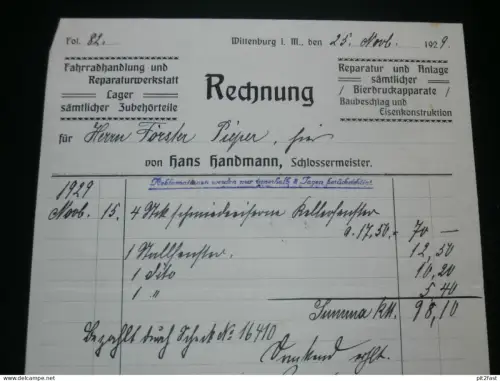 Fol. 82.
Wittenburg i. M., den 25. Novb. 1929.
Fahrradhandlung und
Reparaturwerkstatt
Lager
sämtlicher Zubehörteile
Rechnung
Reparatur und Anlage
sämtlicher
Bierdruckapparate
Baubeschlag und
Eisenkonstruktion
für Herrn Förster Pieper, hier
von Hans Handmann, Schlossermeister.
Reklamationen werden nur innerhalb 8 Tagen berücksichtigt
1929
Novb. 15. 4 Stck schmiedeeiserne Kellerfenster
a. 17,50.= 70 —
1 Stallfenster 12,50
1 dito 10,20
1 " 5 40
Summa RM. 98,10
Bezahlt durch Scheck No 16410
Dankend erhlt.
www.pict2fast.com